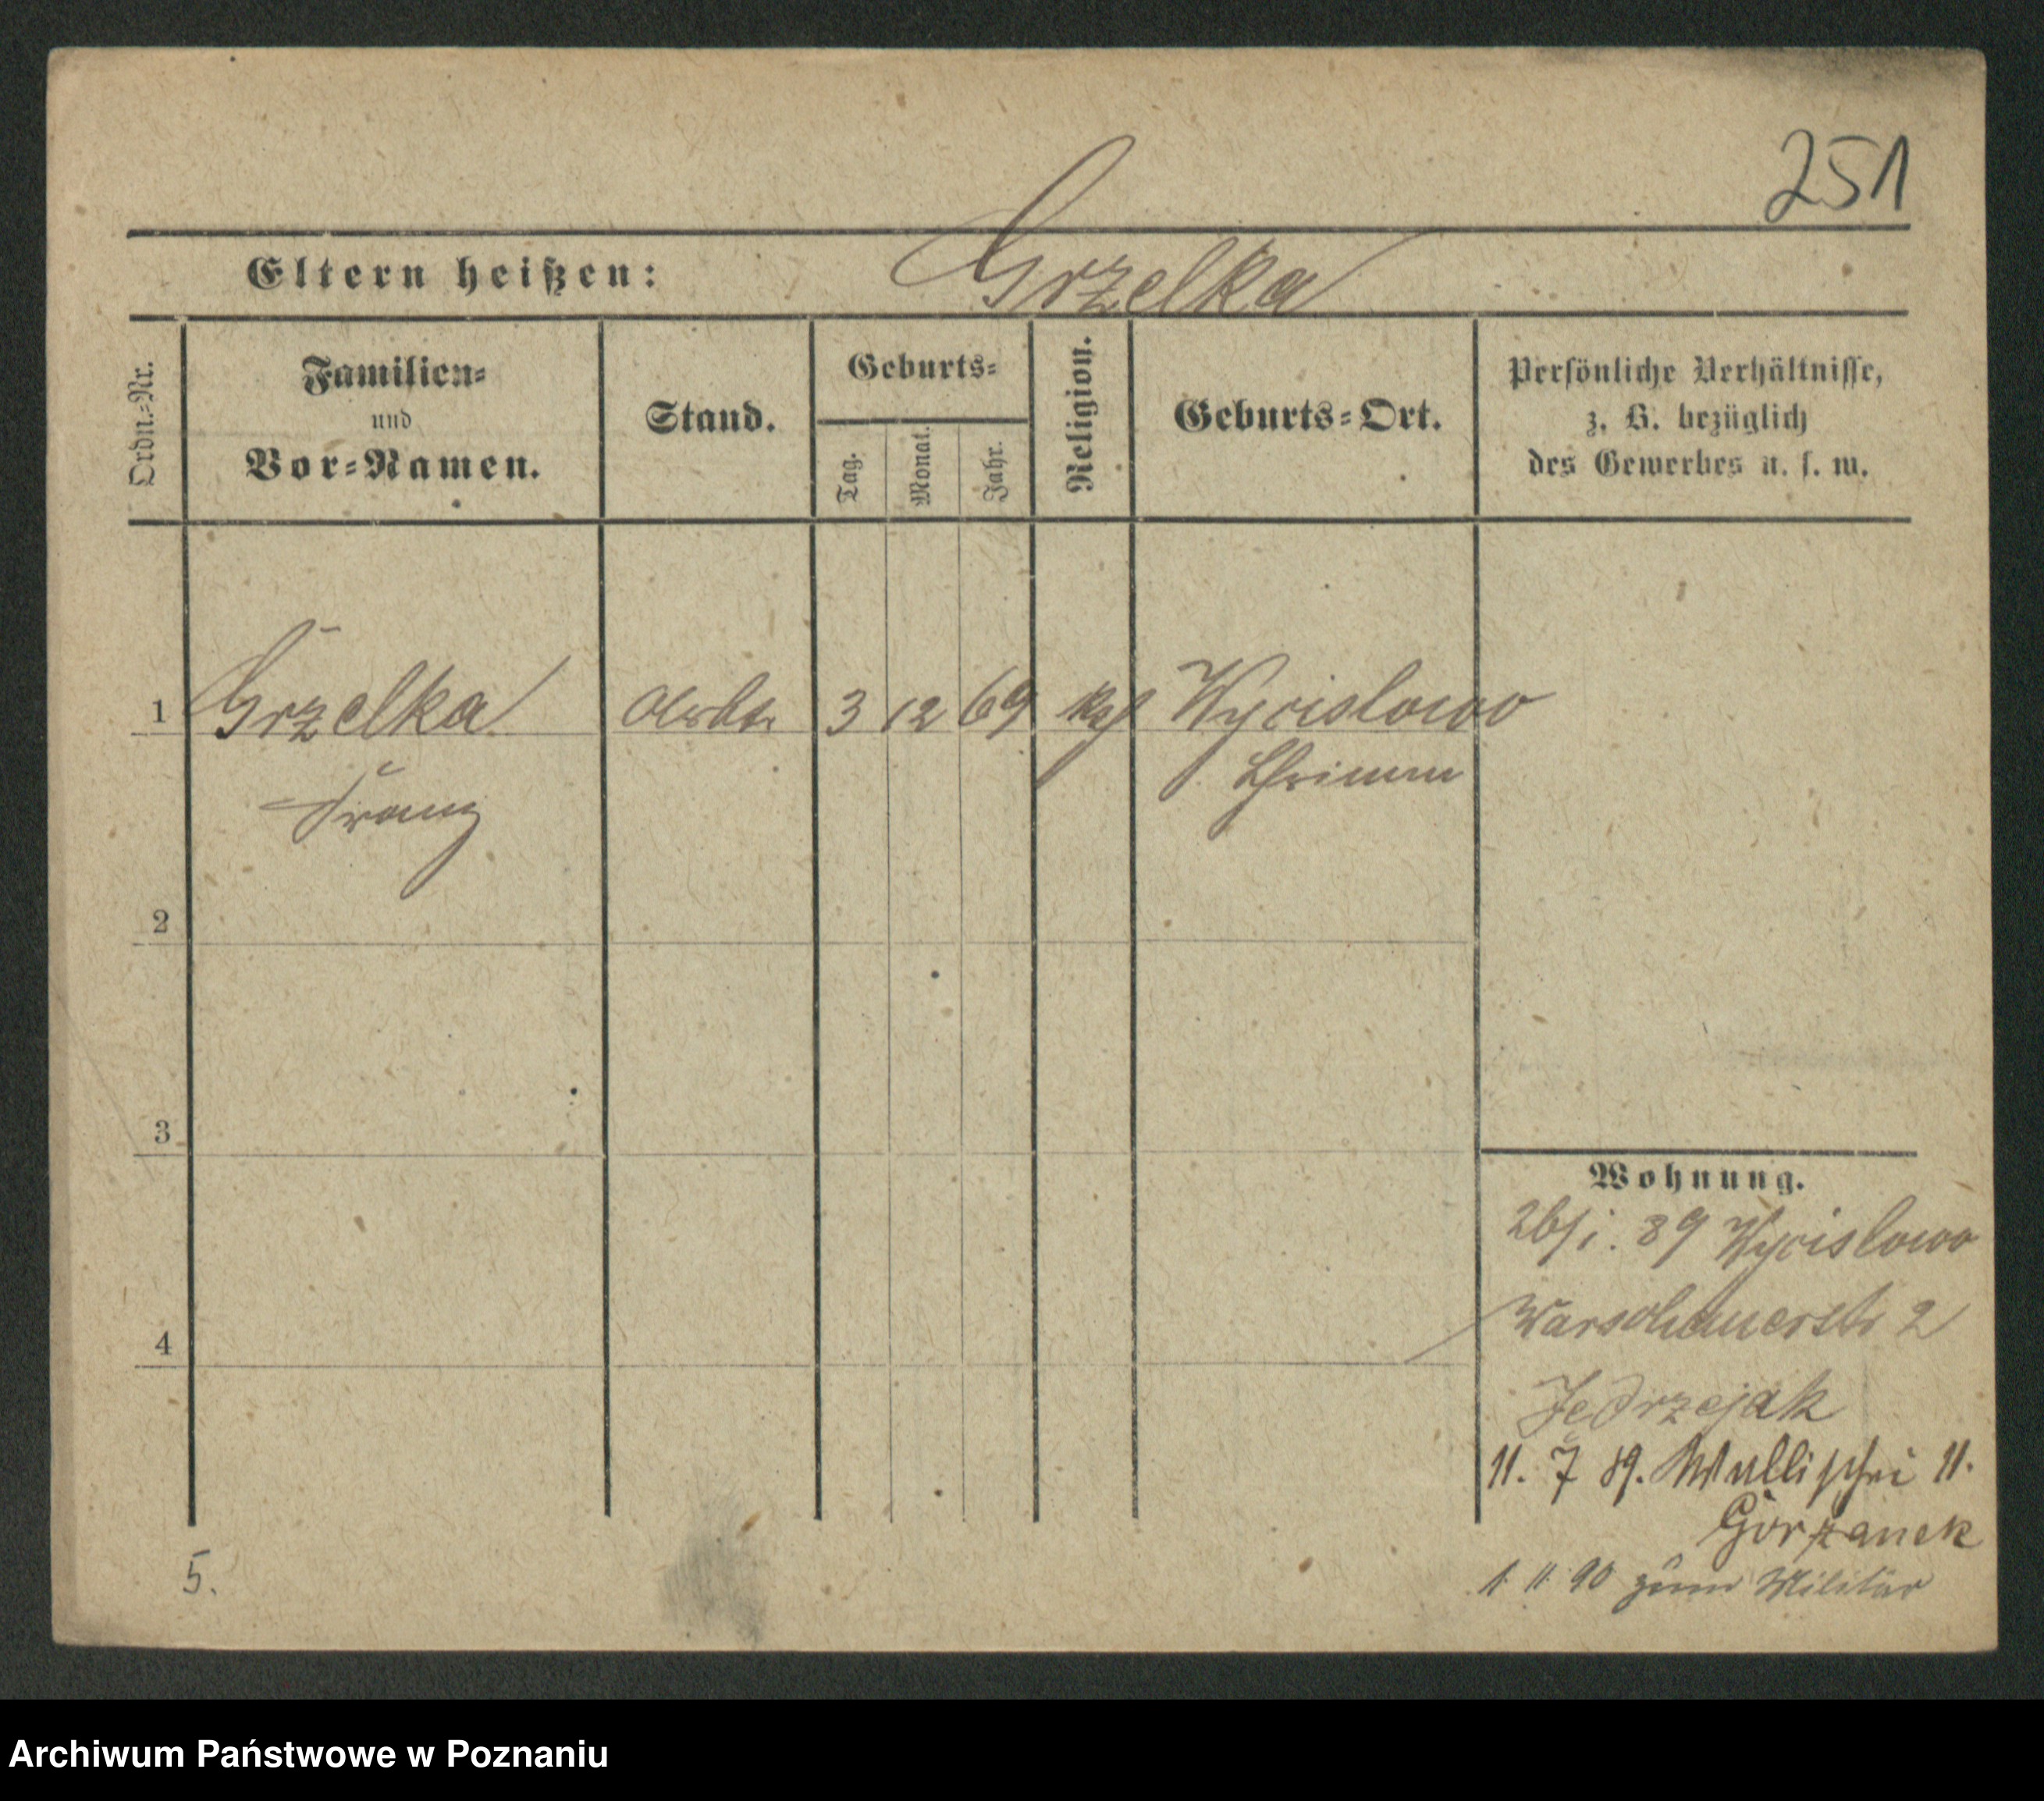 251
Eltern heißen: Grzelka
Ordn.-Nr.
Familien-
und
Vor-Namen.
Stand.
Geburts-
Tag.
Monat.
Jahr.
Religion.
Geburts-Ort.
Persönliche Verhältnisse,
z. B. bezüglich
des Gewerbes u. s. w.
1 Grzelka Arbtr 3 12 69 Wycislowo
Franz Schrimm
2
3
4
Wohnung.
89 Wycislowo
Warschauerstr 2
Jedrzejak
11. 7 89. Wallischei 11.
5.
1 11 90 zum Militär
Archiwum Państwowe w Poznaniu